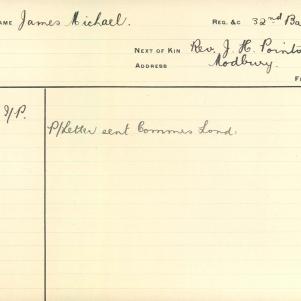 AME James Michael. REG. &c 32nd Ba
NEXT OF KIN Rev. J. H. Points
ADDRESS Modbury.
F
I/P. P/Letter sent Commis Lond.